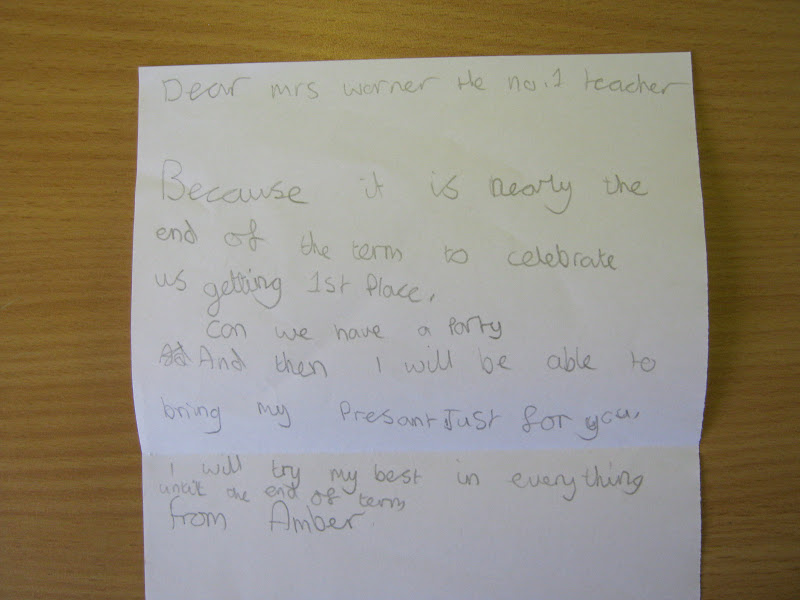 Dear mrs warner the no.1 teacher
Because it is nearly the
end of the term to celebrate
us getting 1st Place,
can we have a Party
And then I will be able to
bring my Presant Just for you.
I will try my best in everything
until the end of term
from Amber